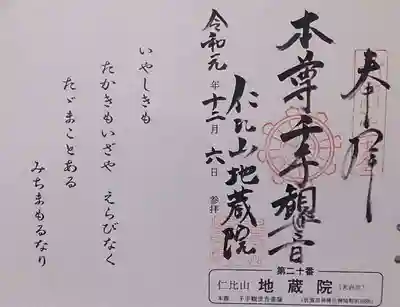 奉拝
本尊千手観音
仁比山地蔵院
令和元年十二月六日
参拝
いやしきも
たかきもいざや えらびなく
たゞまことある
みちまもるなり
第二十番
仁比山 地蔵院
本尊 千手観世音菩薩